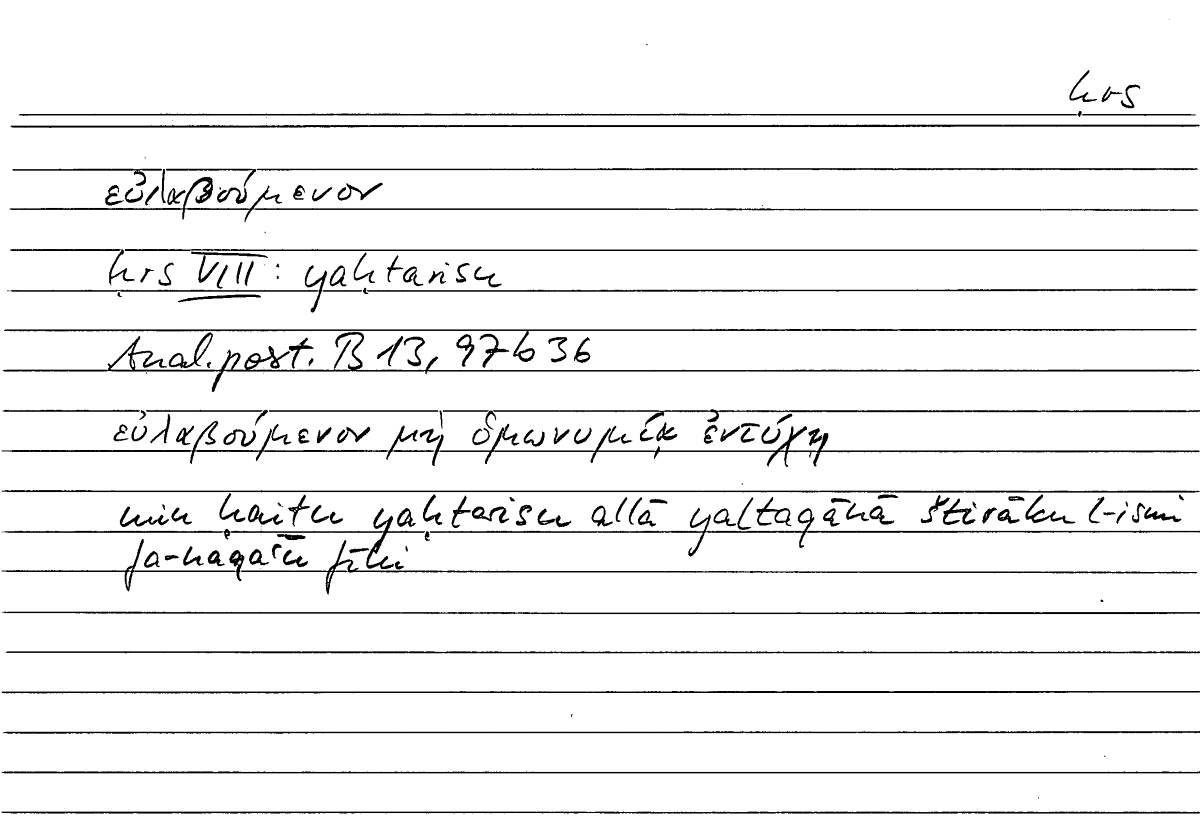 ḥrs
εὐλαβούμενον
ḥrs VIII: yaḥtarisu
Anal. post. B 13, 97b36
εὐλαβούμενον μὴ ὁμωνυμίᾳ ἐντύχῃ
min ḥaitu yaḥtarisu allā yaltaqāhā štirāku l-ismi
fa-naqaʿu fīhi